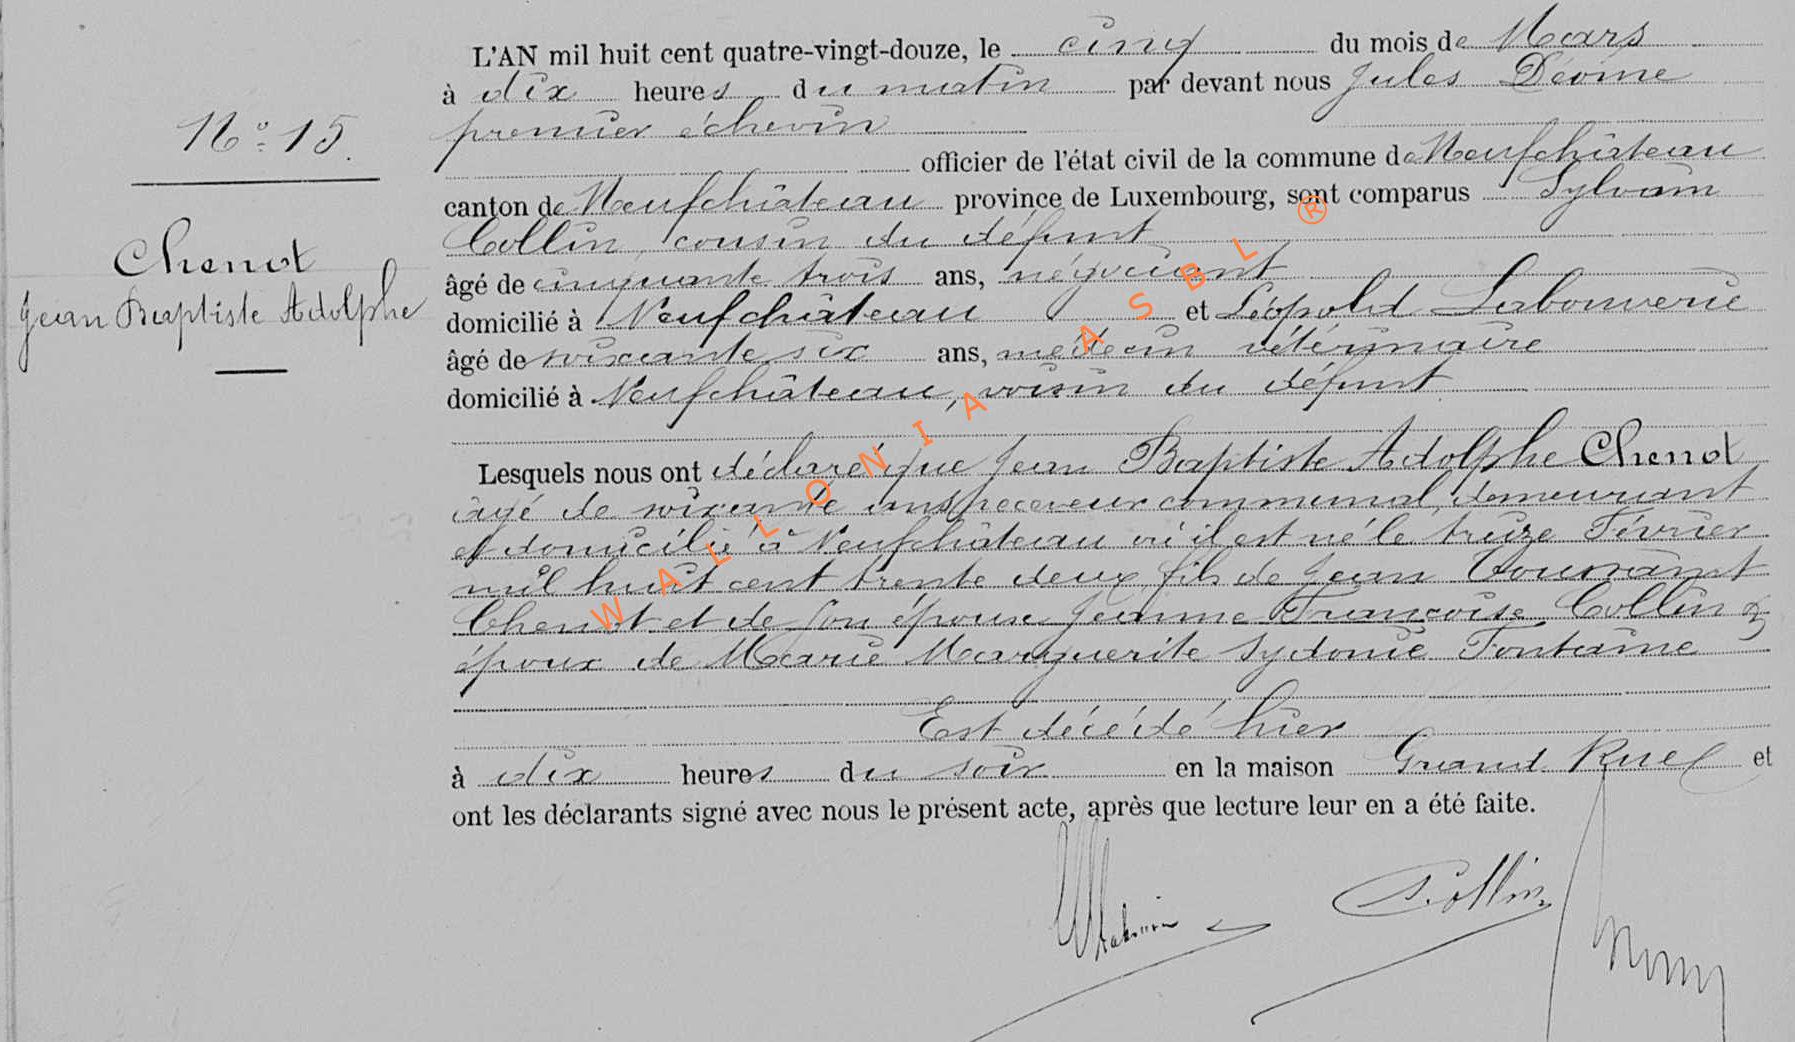 L'AN mil huit cent quatre-vingt-douze, le cinq du mois de Mars
à dix heures du matin par devant nous Jules
premier échevin
officier de l'état civil de la commune de Neufchâteau
canton de Neufchâteau province de Luxembourg, sont comparus Sylvain
Collin, cousin du défunt
âgé de cinquante trois ans, négociant
domicilié à Neufchâteau et Léopold Labouverie
âgé de soixante six ans, médecin vétérinaire
domicilié à Neufchâteau, voisin du défunt
Lesquels nous ont déclaré que Jean Baptiste Adolphe Chenot
âgé de soixante ans, receveur communal, demeurant
et domicilié à Neufchâteau où il est né le treize Février
mil huit cent trente deux fils de Jean Toussaint
Chenot et de son épouse Jeanne Françoise Collin &
époux de Marie Marguerite Sydonie Fontaine
Est décédé hier
à dix heures du soir en la maison Grand Rue et
ont les déclarants signé avec nous le présent acte, après que lecture leur en a été faite.
N° 15.
Chenot
Jean Baptiste Adolphe
S. Collin
WALLONIA ASBL ®